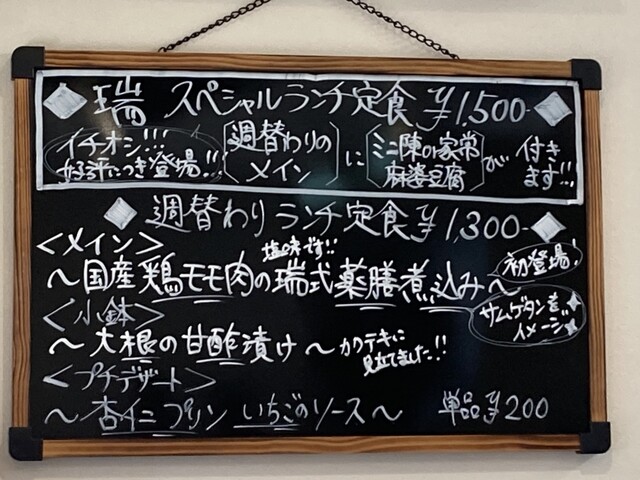 ◆瑞 スペシャルランチ定食 ¥1,500-◆
イチオシ!!!
好評につき登場!!
週替わりの
メイン
に
ミニ陳or家常
麻婆豆腐
が
付き
ます!!
◆週替わりランチ定食¥1,300-◆
<メイン>
塩味です!!
初登場!
～国産鶏モモ肉の瑞式薬膳煮込み～
サムゲタンを
イメージ
<小鉢>
～大根の甘酢漬け～
カクテキに
見立てました!!
<プチデザート>
～杏仁プリン いちごのソース～ 単品¥200